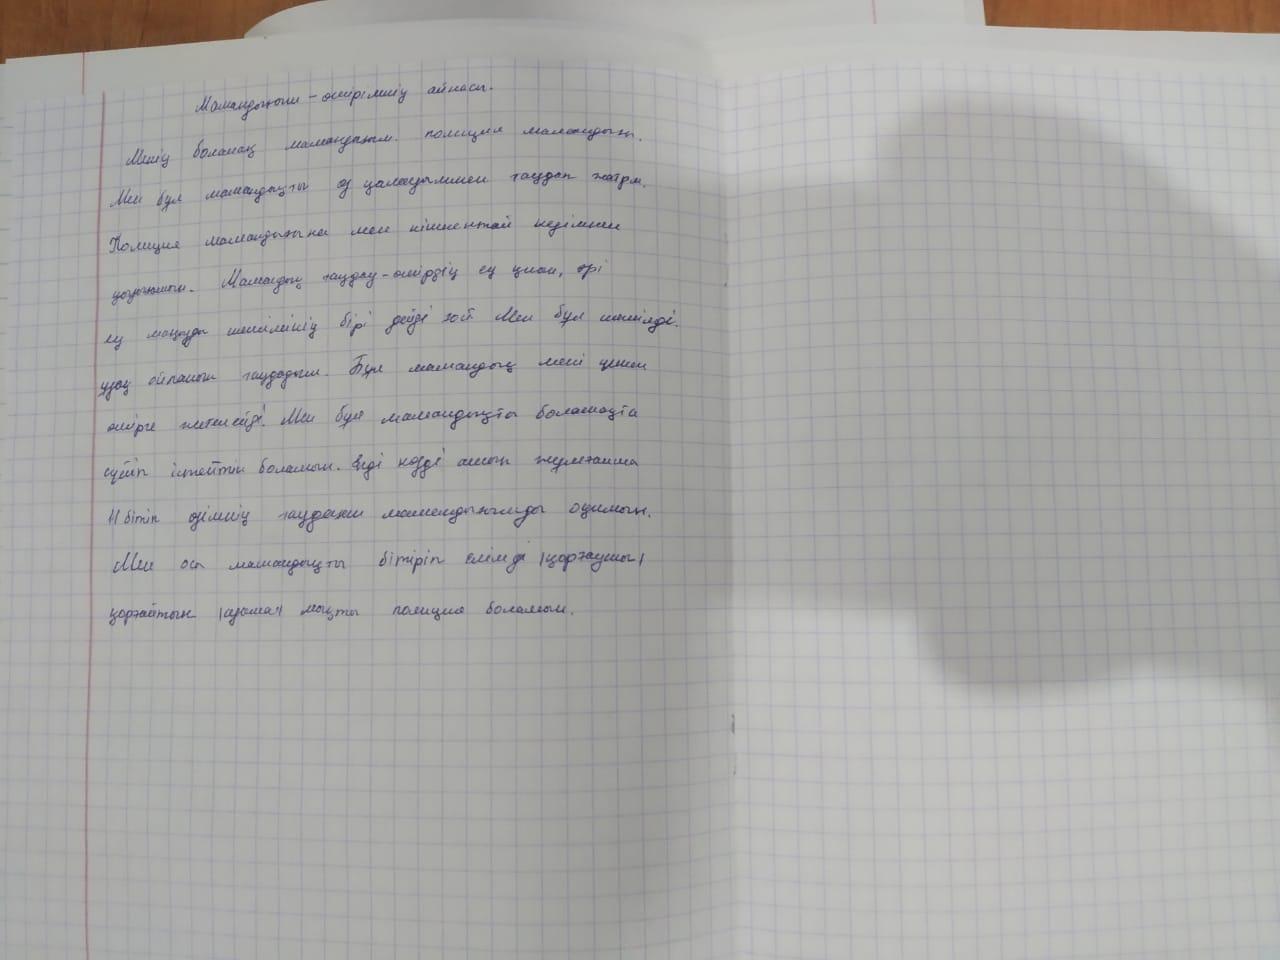 Мамандығым - өмірімнің айнасы.
Менің болашақ мамандығым полиция мамандығы.
Мен бұл мамандықты өз қалауыммен таңдап жатрм.
Полиция мамандығына мен кішкентай кезімнен
қызығамын. Мамандық таңдау - өмірдің ең қиын, әрі
ең маңызды шешімінің бірі дейді ғой Мен бұл шешімді
ұзақ ойланып таңдадым. Бұл мамандық мені үлкен
өмірге жетелейді. Мен бұл мамандықты болашақта
сүйіп істейтін боламын. Енді көзді ашып жұмғанша
11 бітіп өзімнің таңдаған мамандығымды оқимын.
Мен осы мамандықты бітіріп елімді /қорғаушы/
қорғайтын /араша/ мықты полиция боламын.